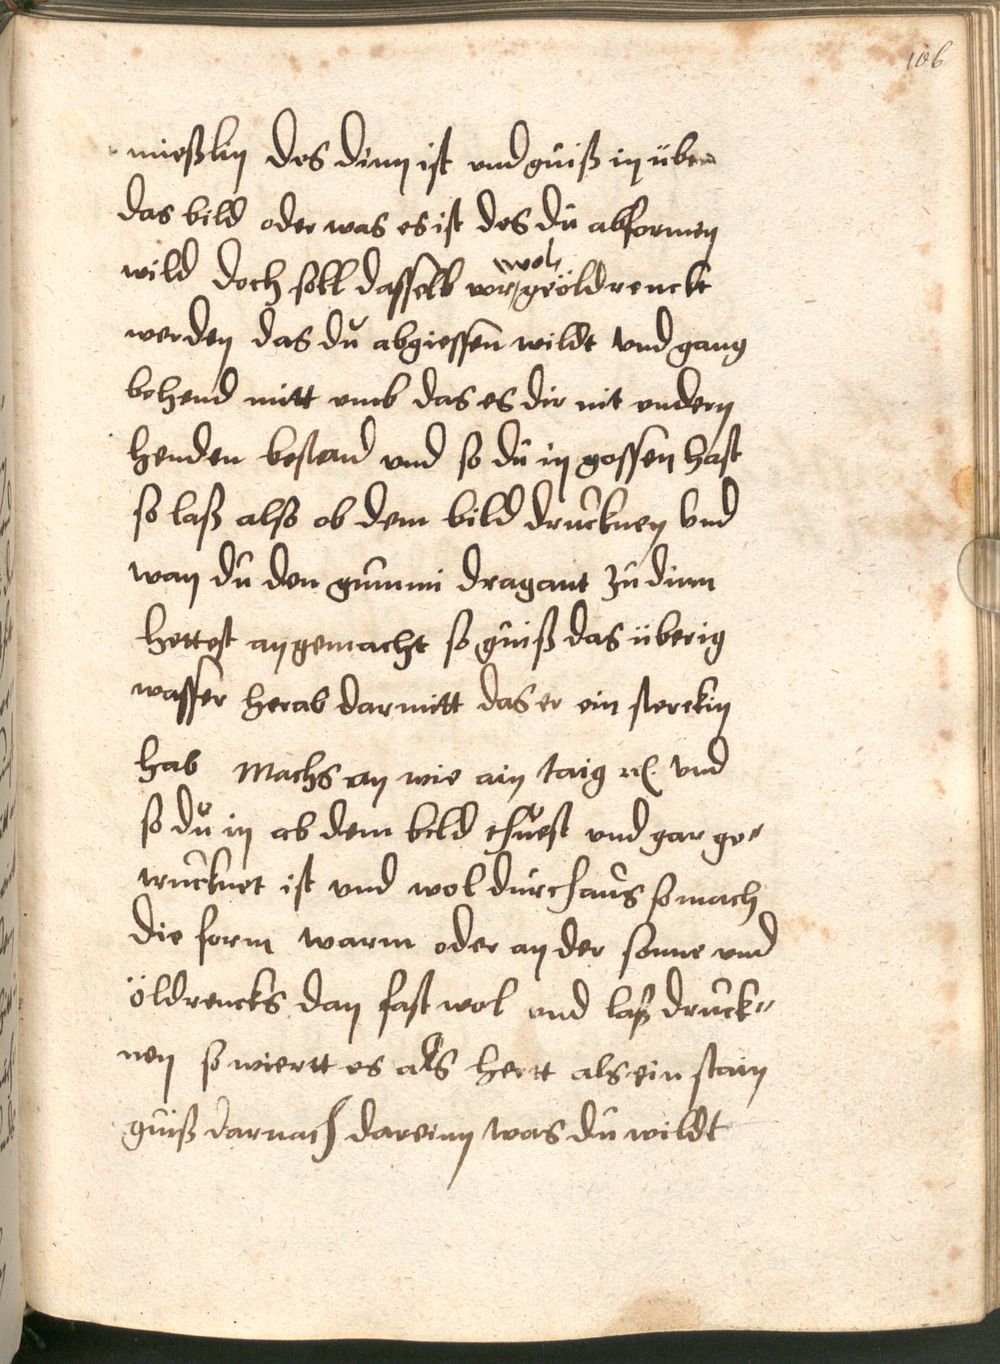 106
mießlin des dinn ist und guiß in über
das bild oder was es ist des du abformen
wild doch soll dasselb vor wol geöldrenckt
werden das du abgiessen wildt und gang
behend mitt umb das es dir nit undern
henden bestand und so du in gossen hast
so laß also ob dem bild drucknen Und
wan du den gummi dragant zu dinn
hettest angemacht so guiß das überig
wasser herab darmitt das er ein sterckin
hab Machs an wie ain taig rc. und
so du in ab dem bild thuest und gar ge⸗
trucknet ist und wol durchaus so mach
die form warm oder an der sonne und
öldrencks dan fast wol und laß druck⸗
nen so wiertt es als hertt als ein stain
guiß darnach dareinn was du wildt